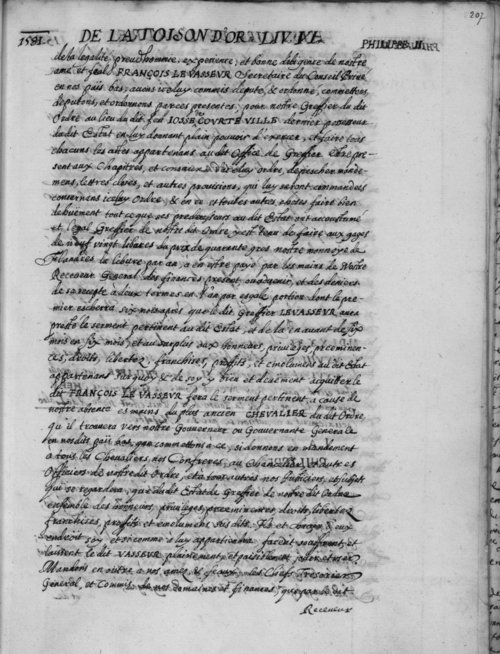 207
1581. DE LA TOISON D'OR. LIV. IV. PHILIPPE II.
de la legalité, preud'hommie, experience, et bonne diligence de nostre
amé et feal FRANÇOIS LE VASSEUR Secretaire du Conseil Privé
en nos païs bas, avons icelluy commis deputé, & ordonné, commettons,
deputons, et ordonnons par ces presentes, pour nostre Greffier du dit
Ordre au lieu du dit feu IOSSE DE COURTE VILLE dernier possesseur
du dit Estat en luy donnant plain pouvoir d'exercer, et faire tous
et chacuns les actes appartenans au dit Office de Greffier estre pre-
sent aux Chapitres, et communs d'icelluy ordre, depescher
lettres closes, et autres provisions, qui luy seront commandées
concernans icelluy Ordre, & en ce et toutes autres choses faire bien
et deuëment tout ce que ses predecesseurs au dit Estat ont accoustumé
et leal Greffier de nostre dit Ordre est tenu de faire aux gages
de neuf vingt libvres du prix de quarante gros nostre monnoye de
Flandres la libvre par an, à en estre payé par les mains de nostre
Receveur General des finances present, ou à venir, et des deniers
de sa recepte à deux termes en l'an par egale portion dont le pre-
mier escherra six mois aprés que le dit Greffier LE VASSEUR aura
presté le serment pertinent au dit Estat, et de là en avant de six
mois en six mois, et au surplus aux honneurs, privileges, preeminen-
ces, droits, libertez, franchises, profits, et emolumens au dit Estat
appartenans sur quoy & de soy y bien et deuëment acquitter le
dit FRANÇOIS LE VASSEUR fera le serment pertinent, à cause de
nostre absence es mains du plus ancien CHEVALIER du dit Ordre
qu'il trouvera vers nostre Gouverneur ou Gouvernante Generale
en nos dits païs bas, que commettons à ce, si donnons en mandement
à tous les Chevaliers nos Confreres, au Chancellier, et autres
Officiers de nostre dit Ordre, et à tous autres nos Justiciers, et subjets
qui ce regardera, que du dit Estat de Greffier de nostre dit Ordre
ensemble des honneurs, privileges, preeminences, droits, libertez
franchises, proffits et emolumens susdits & chacun d'eux
endroit soy et si comme à luy appartiendra facent souffrent, et
laissent le dit VASSEUR plainement, et paisiblement jouir et user
Mandons en outre à nos amez & feaux, les Chefs Tresorier
General, et Commis de nos demaines et finances, que par le dit
Receveur